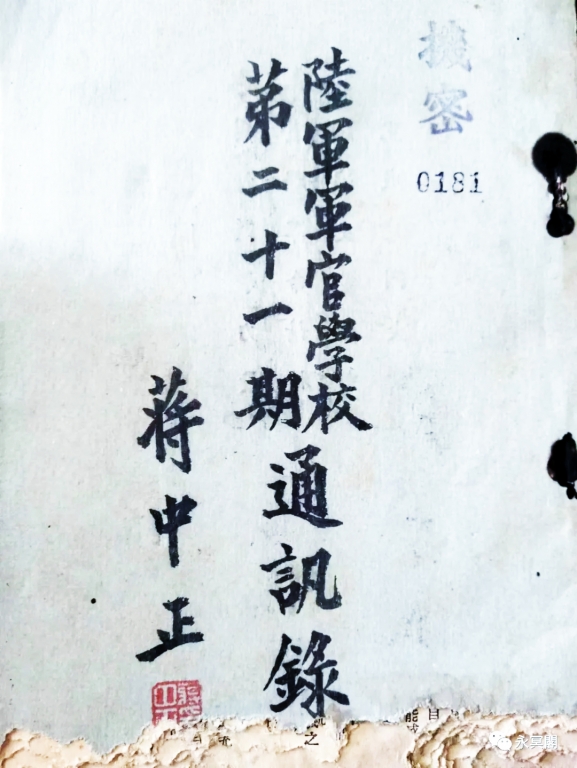 機密
0181
陸軍軍官學校
第二十一期
通訊錄
蔣中正
自
能
之
永昊閣